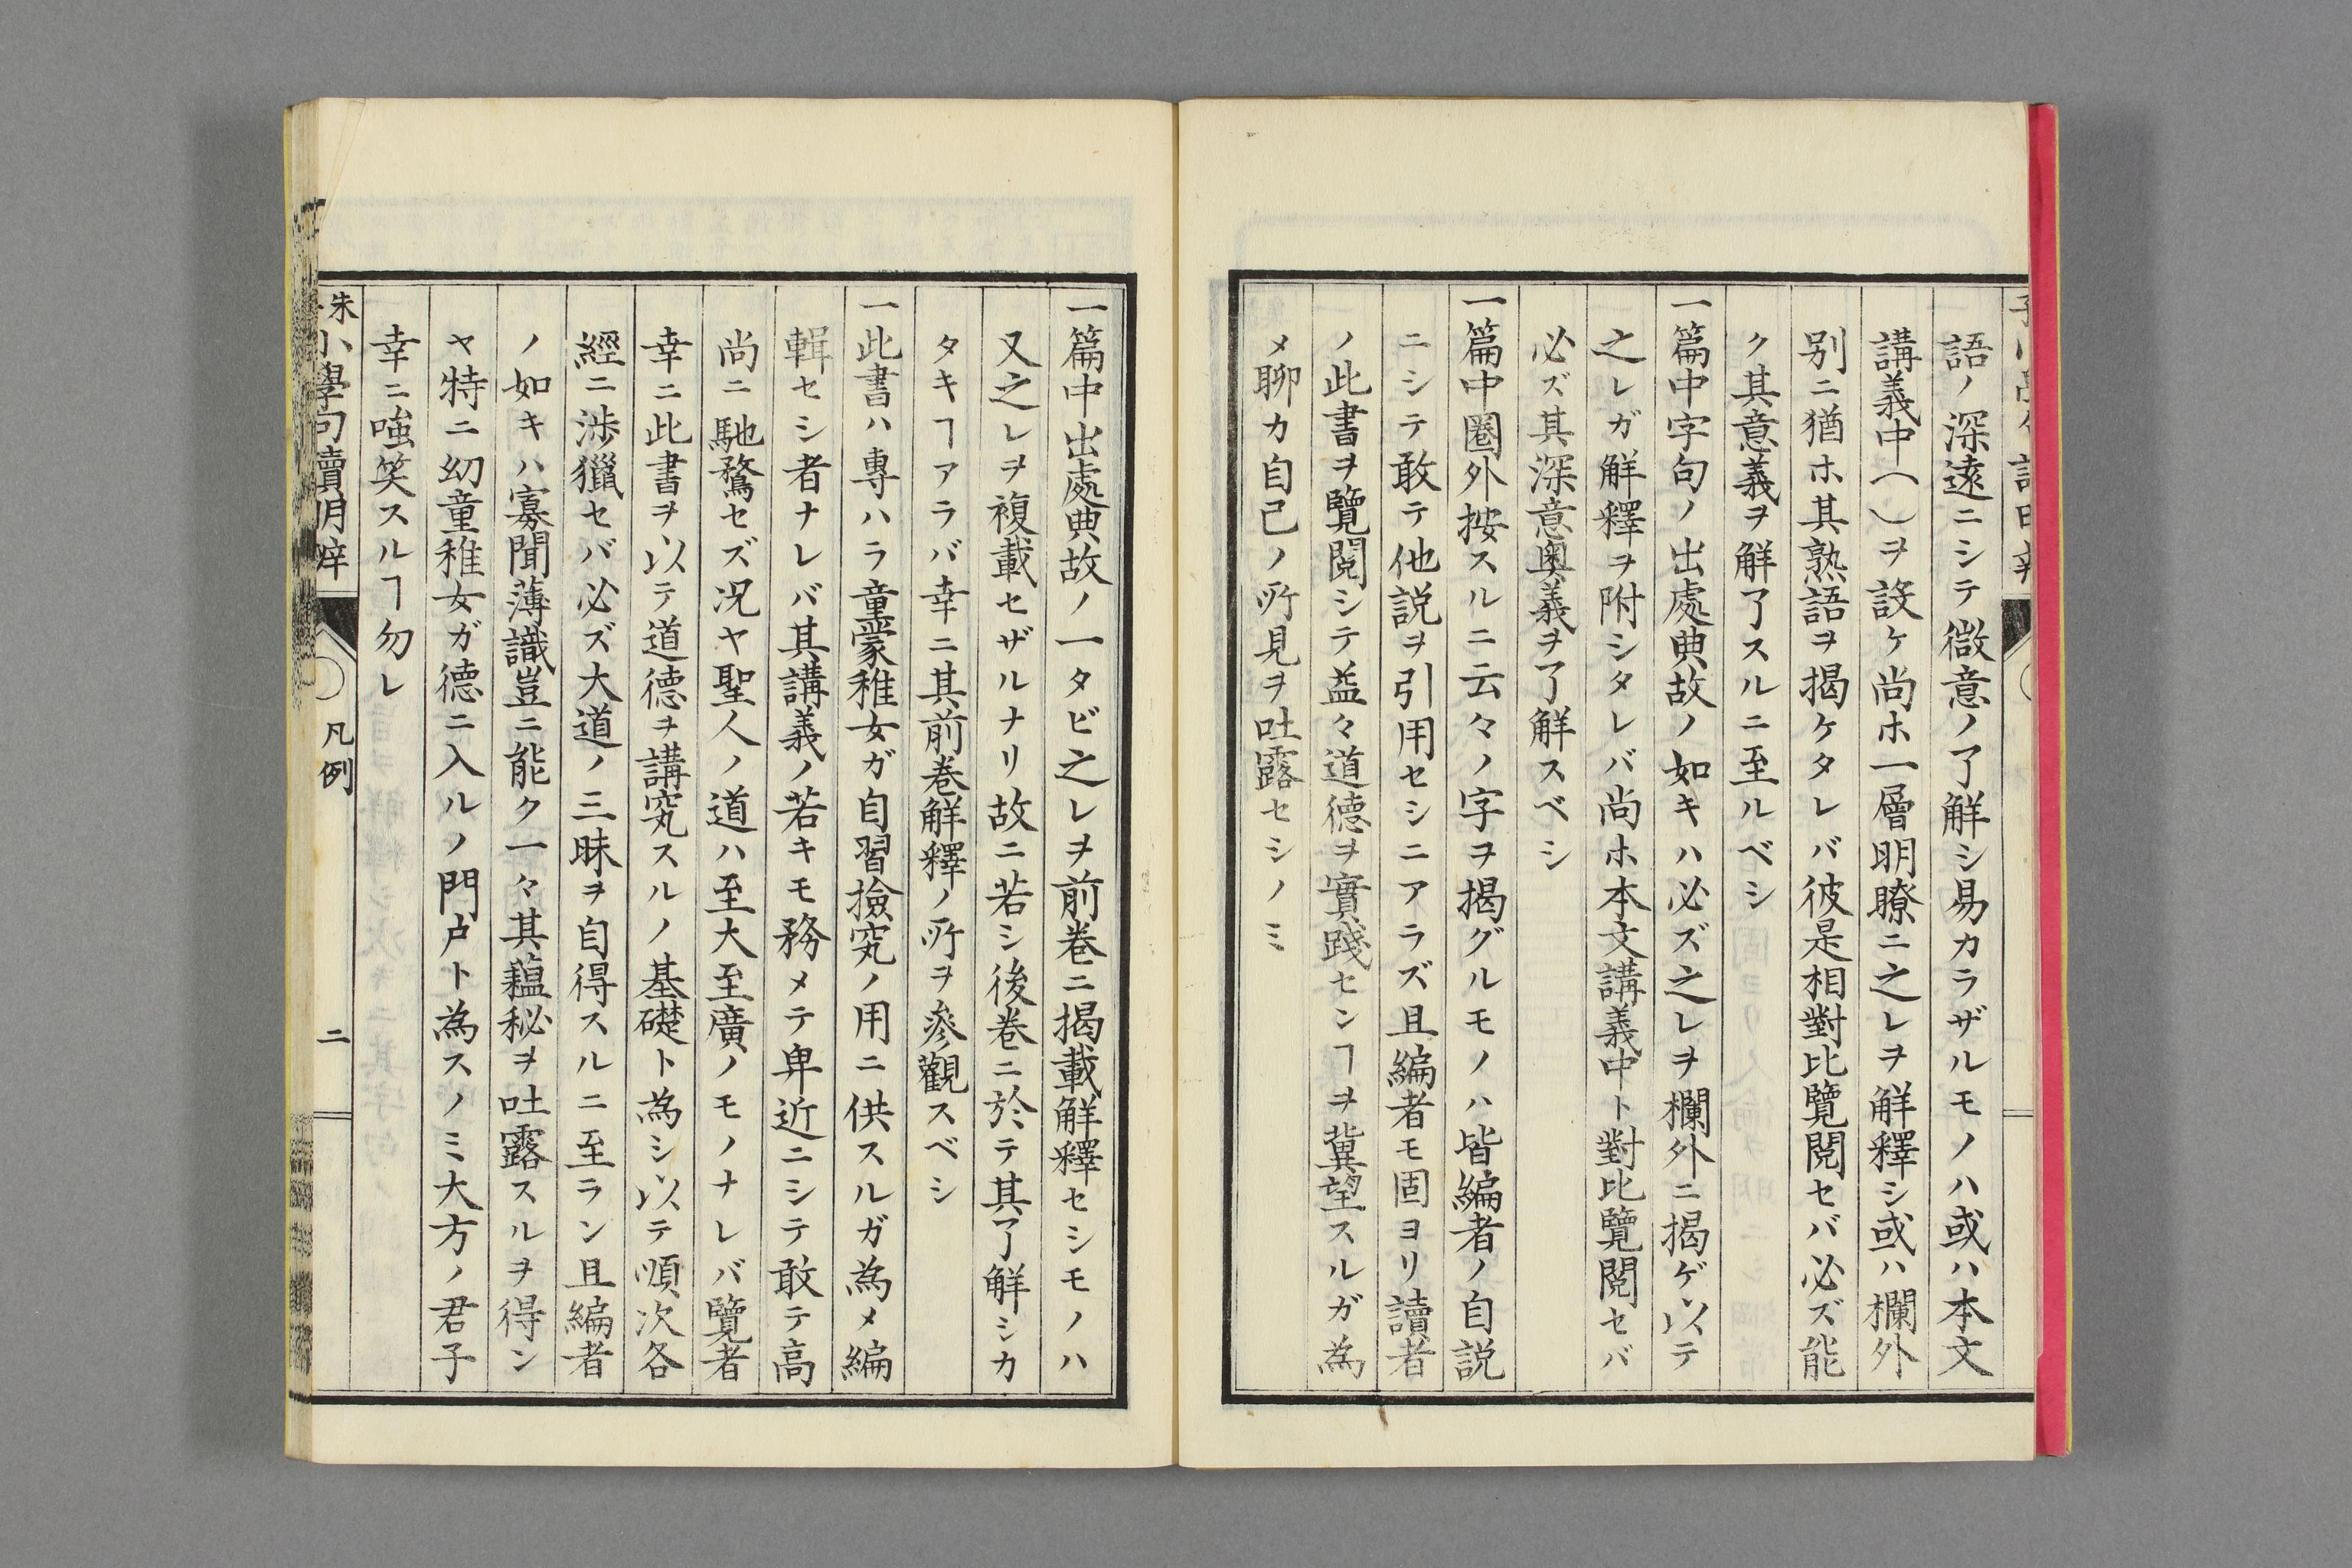 語ノ深遠ニシテ微意ノ了解シ易カラザルモノハ或ハ本文
講義中〔〕ヲ設ケ尚ホ一層明瞭ニ之レヲ解釋シ或ハ欄外
別ニ猶ホ其熟語ヲ揭ケタレバ彼是相對比覽閱セバ必ズ能
ク其意義ヲ解了スルニ至ルベシ
一篇中字句ノ出處典故ノ如キハ必ズ之レヲ欄外ニ揭ゲ以テ
之レガ解釋ヲ附シタレバ尚ホ本文講義中ト對比覽閱セバ
必ズ其深意奥義ヲ了解スベシ
一篇中圏外按スルニ云々ノ字ヲ揭グルモノハ皆編者ノ自説
ニシテ敢テ他説ヲ引用セシニアラズ且編者モ固ヨリ讀者
ノ此書ヲ覽閱シテ益々道德ヲ實踐センヿヲ冀望スルガ為
メ聊カ自己ノ所見ヲ吐露セシノミ
一篇中出處典故ノ一タビ之レヲ前卷ニ揭載解釋セシモノハ
又之レヲ複載セザルナリ故ニ若シ後卷ニ於テ其了解シカ
タキヿアラバ幸ニ其前卷解釋ノ所ヲ參觀スベシ
一此書ハ專ハラ童蒙稚女ガ自習撿究ノ用ニ供スルガ為メ編
輯セシ者ナレバ其講義ノ若キモ務メテ卑近ニシテ敢テ高
尚ニ馳騖セズ况ヤ聖人ノ道ハ至大至廣ノモノナレバ覽者
幸ニ此書ヲ以テ道德ヲ講究スルノ基礎ト為シ以テ順次各
經ニ涉獵セバ必ズ大道ノ三昧ヲ自得スルニ至ラン且編者
ノ如キハ寡聞薄識豈ニ能ク一々其藴秘ヲ吐露スルヲ得ン
ヤ特ニ幼童稚女ガ德ニ入ルノ門戸ト為スノミ大方ノ君子
幸ニ嗤笑スルヿ勿レ
朱 小學句讀明辨 凡例 二